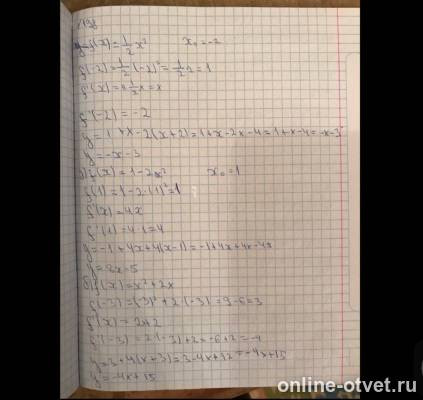 f(x)=½x² x₀=-2
f(-2)=½·(-2)²=
f'(x)=2·½x=x
f'(-2)=-2
y=1+x-2(x+2)=1+x-2x-4=1+x-4=-x-3
y=-x-3
f(x)=1-2x² x₀=1
f(1)=1-2·(1)²=1
f'(x)=4x
f'(1)=4·1=4
y=-1+4x+4(x-1)=-1+4x+4x-4
y=8x-5
f(x)=x²+2x
f(-3)=(-3)²+2·(-3)=9-6=3
f'(x)=2x+2
f'(-3)=2·(-3)+2=-6+2=-4
y=3-4(x+3)=3-4x+12=-4x+15
y=-4x+15
online-otvet.ru